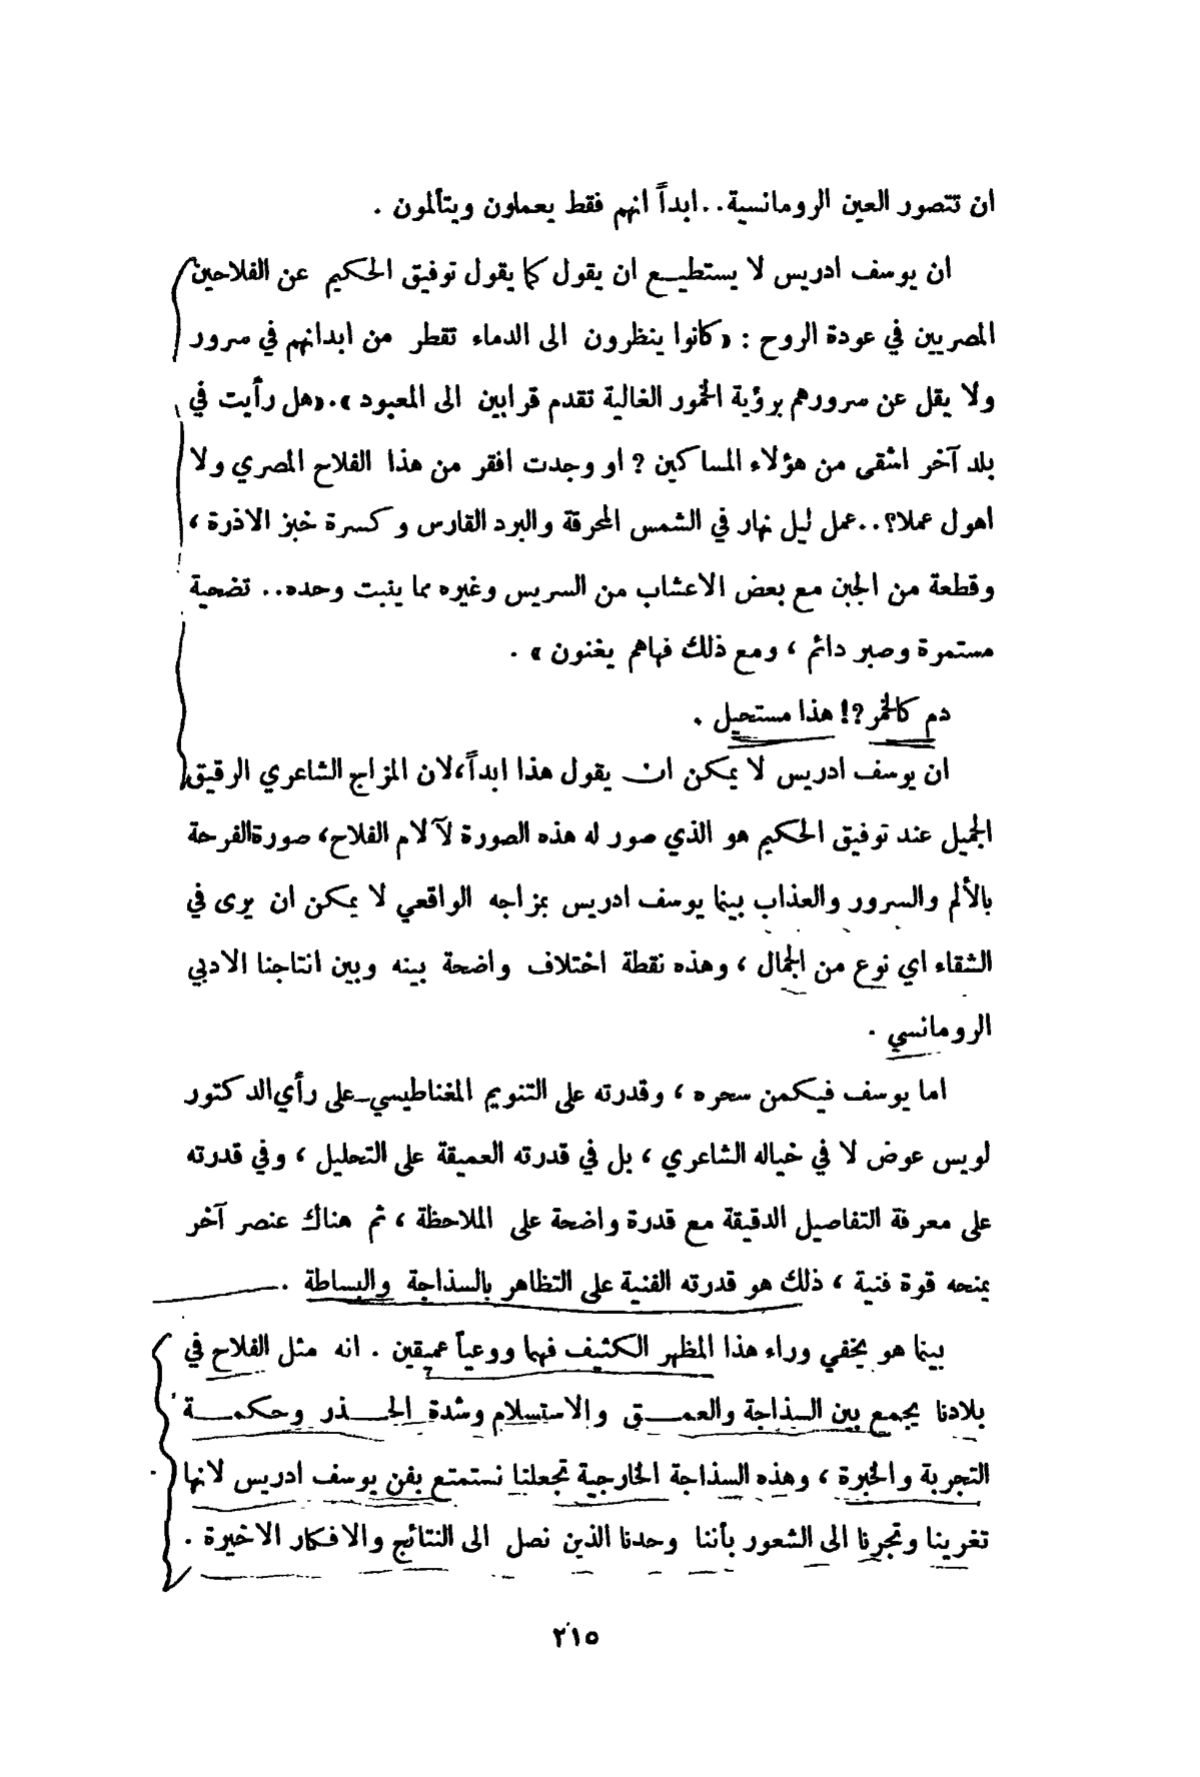 ان تتصور العين الرومانسية..ابداً انهم فقط يعملون ويتألمون .
ان يوسف ادريس لا يستطيـع ان يقول كما يقول توفيق الحكيم عن الفلاحين
المصريين في عودة الروح : «كانوا ينظرون الى الدماء تقطر من ابدانهم في سرور
ولا يقل عن سرورهم برؤية الخمور الغالية تقدم قرابين الى المعبود ».«هل رأيت في
بلد آخر اشقى من هؤلاء المساكين ? او وجدت افقر من هذا الفلاح المصري ولا
اهول عملا؟..عمل ليل نهار في الشمس المحرقة والبرد القارس وكسرة خبز الاذرة ،
وقطعة من الجبن مع بعض الاعشاب من السريس وغيره مما ينبت وحده.. تضحية
مستمرة وصبر دائم ، ومع ذلك فهاهم يغنون » .
دم كالخمر?! هذا مستحيل .
ان يوسف ادريس لا يمكن ان يقول هذا ابداً،لان المزاج الشاعري الرقيق
الجميل عند توفيق الحكيم هو الذي صور له هذه الصورة لآلام الفلاح، صورةالفرحة
بالألم والسرور والعذاب بينما يوسف ادريس بمزاجه الواقعي لا يمكن ان يرى في
الشقاء اي نوع من الجمال ، وهذه نقطة اختلاف واضحة بينه وبين انتاجنا الادبي
الرومانسي .
اما يوسف فيكمن سحره ، وقدرته على التنويم المغناطيسي_على رأي الدكتور
لويس عوض لا في خياله الشاعري ، بل في قدرته العميقة على التحليل ، وفي قدرته
على معرفة التفاصيل الدقيقة مع قدرة واضحة على الملاحظة ، ثم هناك عنصر آخر
يمنحه قوة فنية ، ذلك هو قدرته الفنية على التظاهر بالسذاجة والبساطة .
بينما هو يخفي وراء هذا المظهر الكثيف فهما ووعياً عميقين . انه مثل الفلاح في
بلادنا يجمع بين السذاجة والعمـق والاستسلام وشدة الحـذر وحكمـة
التجربة والخبرة ، وهذه السذاجة الخارجية تجعلنا نستمتع بفن يوسف ادريس لانها
تغرينا وتجرنا الى الشعور بأننا وحدنا الذين نصل الى النتائج والافكار الاخيرة .
٢١٥